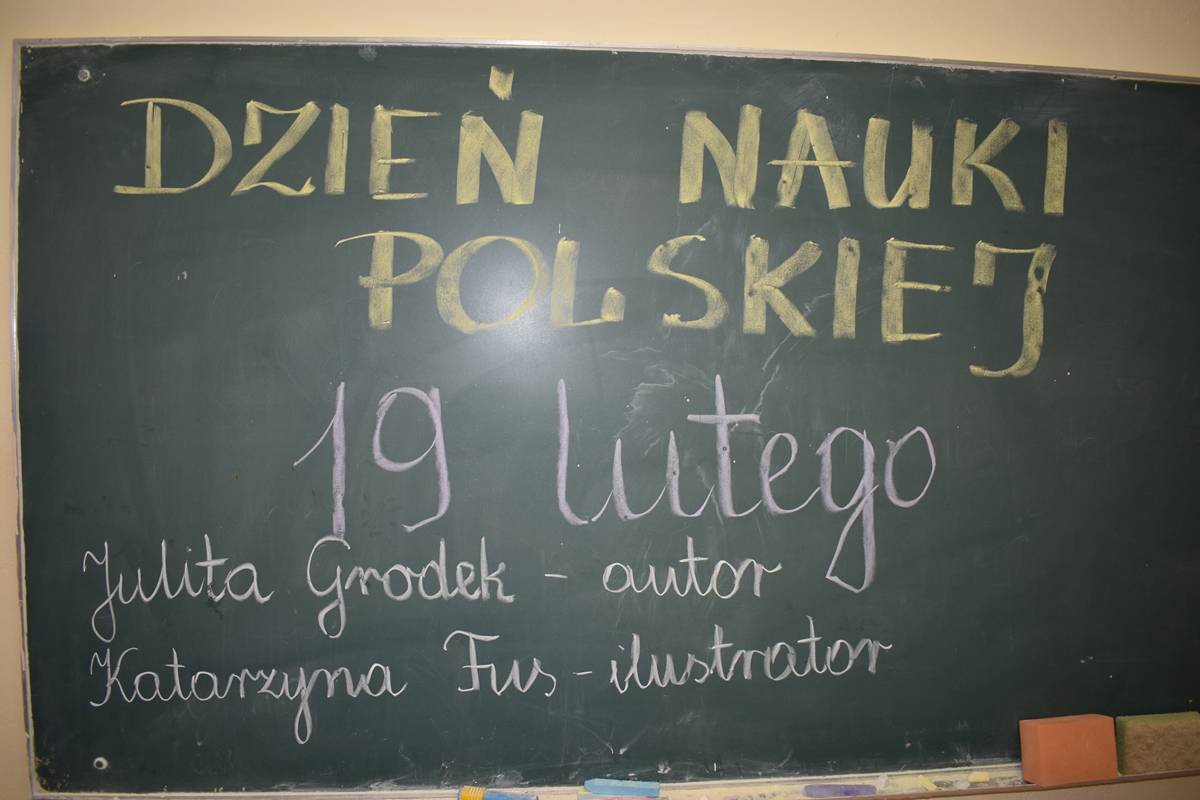 DZIEŃ NAUKI
POLSKIEJ
19 lutego
Julita Grodek - autor
Katarzyna Fus - ilustrator